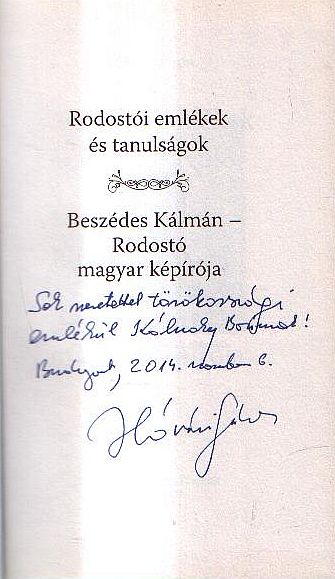 Rodostói emlékek
és tanulságok
Beszédes Kálmán –
Rodostó
magyar képírója
Sok szeretettel törökországi
emlékül Kálnoky
2014. november 6.
Hóvári János